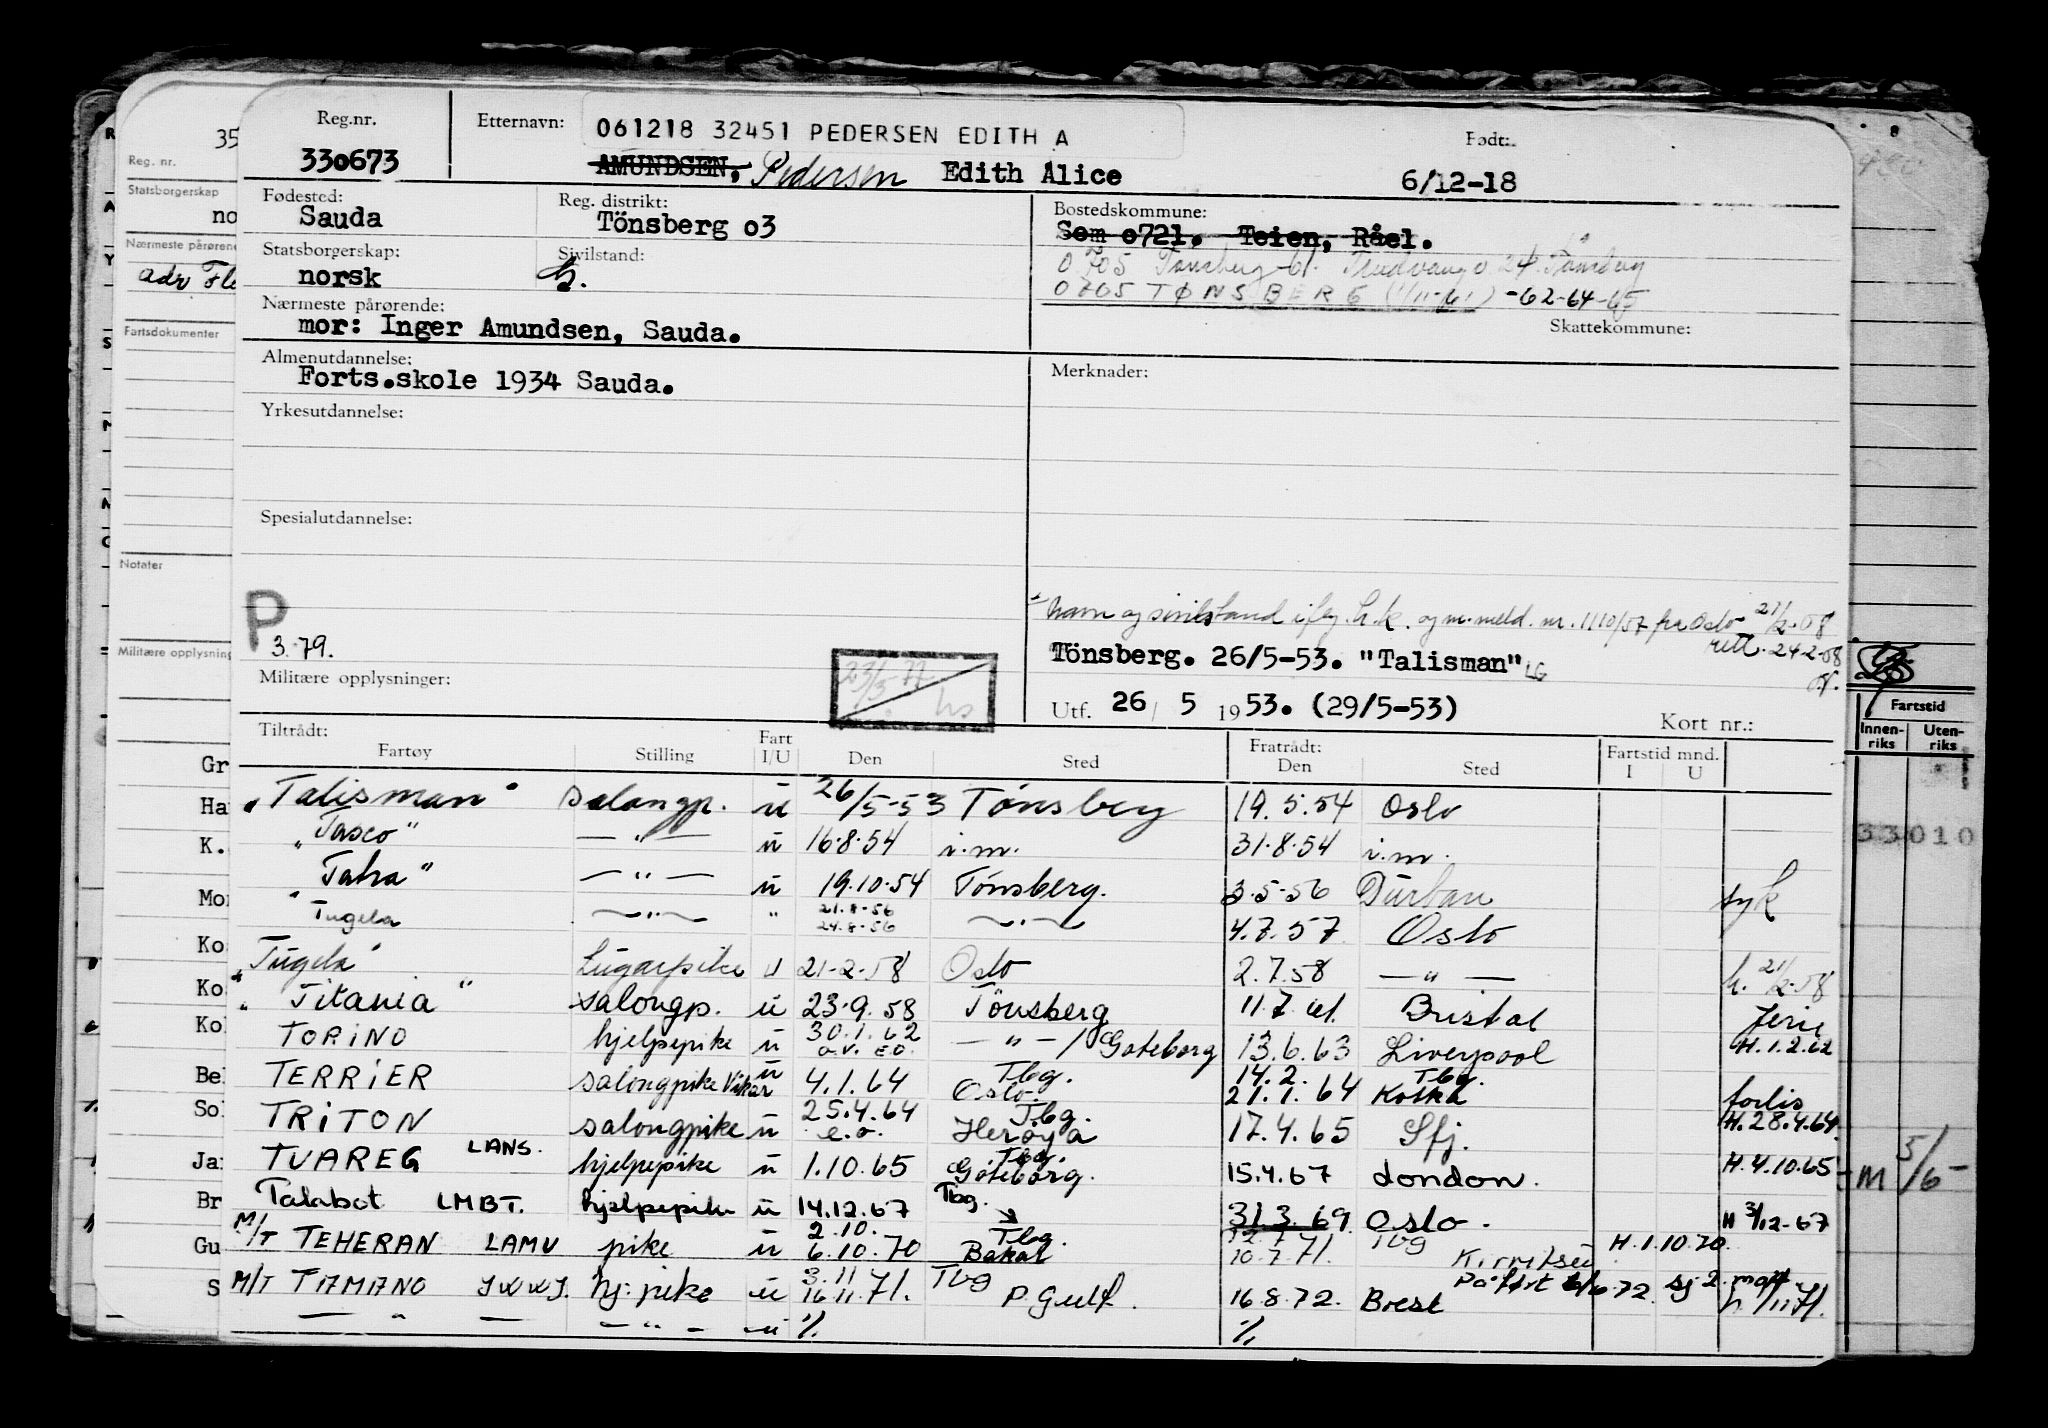 Reg.nr. Etternavn: 061218 32451 PEDERSEN EDITH A Født:
330673 AMUNDSEN, Pedersen Edith Alice 6/12-18
Fødested: Reg. distrikt: Bostedskommune:
Sauda Tönsberg o3 Sem o721. Teien, Råel.
Statsborgerskap: Sivilstand: 0705 Tønsberg
norsk 0705 TØNSBERG (1/11-61) -62-64-65
Nærmeste pårørende: Skattekommune:
mor: Inger Amundsen, Sauda.
Almenutdannelse: Merknader:
Forts.skole 1934 Sauda.
Yrkesutdannelse:
Spesialutdannelse:
P
3.79.
Navn og sivilstand iflg. h.k. og m.meld. nr. 1110/57 fra Oslo 21/2-58
rett. 24-2-58
Tönsberg. 26/5-53. "Talisman" LG
Militære opplysninger:
23/3-77 hs
Utf. 26 / 5 1953. (29/5-53)
Kort nr.:
Tiltrådt: Fratrådt:
Fartøy Stilling Fart I/U Den Sted Den Sted Fartstid mnd. I U
"Talisman" salongp. u 26/5-53 Tønsberg 19.5.54 Oslo
"Tasco" — " — u 16.8.54 i.m. 31.8.54 i.m.
"Tatra" — " — u 19.10.54 Tönsberg. 3.5.56 Durban syk
Tugela — " — " 21.8-56 24.8-56 — " — 4.7.57 Oslo
"Tugela" Lugarpike u 21-2-58 Oslo 2.7.58 — " — h. 21/2-58
"Titania" salongp. u 23.9.58 Tönsberg 11.7.61. Bristol ferie
TORINO hjelpepike u 30.1.62 a.v. E.O. — " — / Gøteborg 13.6.63 Liverpool H.1.2.62
TERRIER salongpike Vikar u 4.1.64 Tbg. Oslo. 14.2. 21.1.64 Tbg. Kotka forlis
TRITON salongpike u 25.4.64 e.o. Tbg. Herøya 17.4.65 Sfj. H.28.4.64.
TUAREG LANS. hjelpepike u 1.10.65 Tbg. Göteborg. 15.4.67 London. H.4.10.65
Talabot LMBT. hjelpepike u 14.12.67 Tbg. 31.3.69 Oslo. H 3/12-67
M/T TEHERAN LAMV pike u 2.10. 6.10.70 Tbg. Bakar 10.7.71. Tbg H.1.10.70
M/T TAMANO JWWJ. hj: pike u 3.11 16.11.71. Tbg P. Gulf. 16.8.72. Brest
— " — — " — u %. %.
35
Reg. nr.
Statsborgerskap
no
Nærmeste pårørende
adr
Fartsdokumenter
Notater
Militære opplysning
Gr
Ha
K.
Mo
Ko
Ko
Kol
Be
So
Ja
Br
Gu
S
Fartstid
Innen-riks Uten-riks
33010
M 5/65